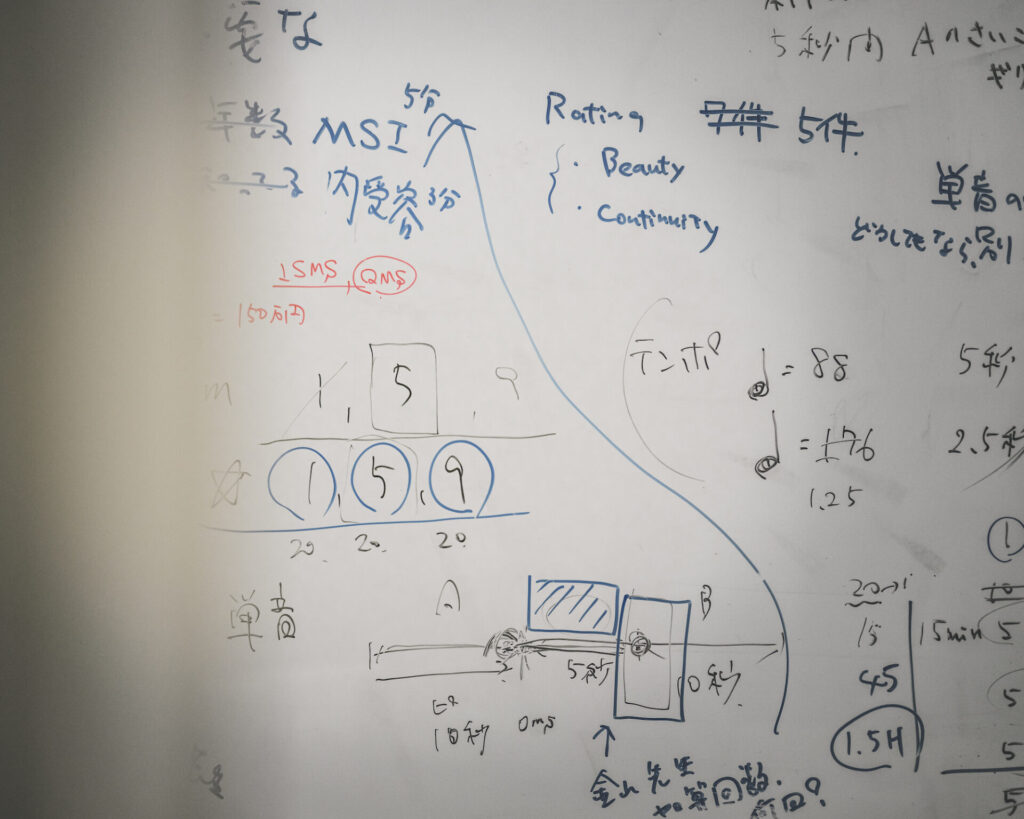 な
5秒内 A
5分
MSI
Rating 7件 5件
・Beauty
・Continuity
内受容 3分
単音の
どうしてもなら別
15MS, QMS
= 150万円
1, 5, 9
テンポ ♩= 88 5秒
♩= 176 2.5秒
1.25
☆ 1, 5, 9
20. 20. 20.
単音
A
B
5秒
0秒
10秒
0ms
↑
金山先生
加算回数,
何回?
20→
15
45
1.5H
1
10
15min 5
5
5
5